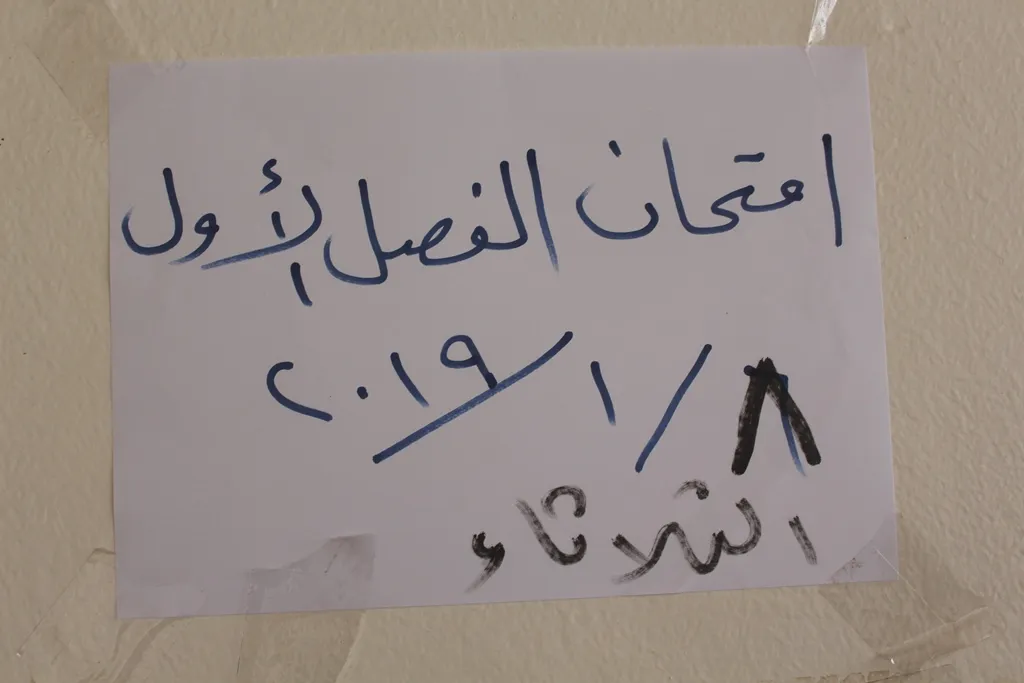 امتحان الفصل الأول
٨/ ١/ ٢٠١٩
الثلاثاء